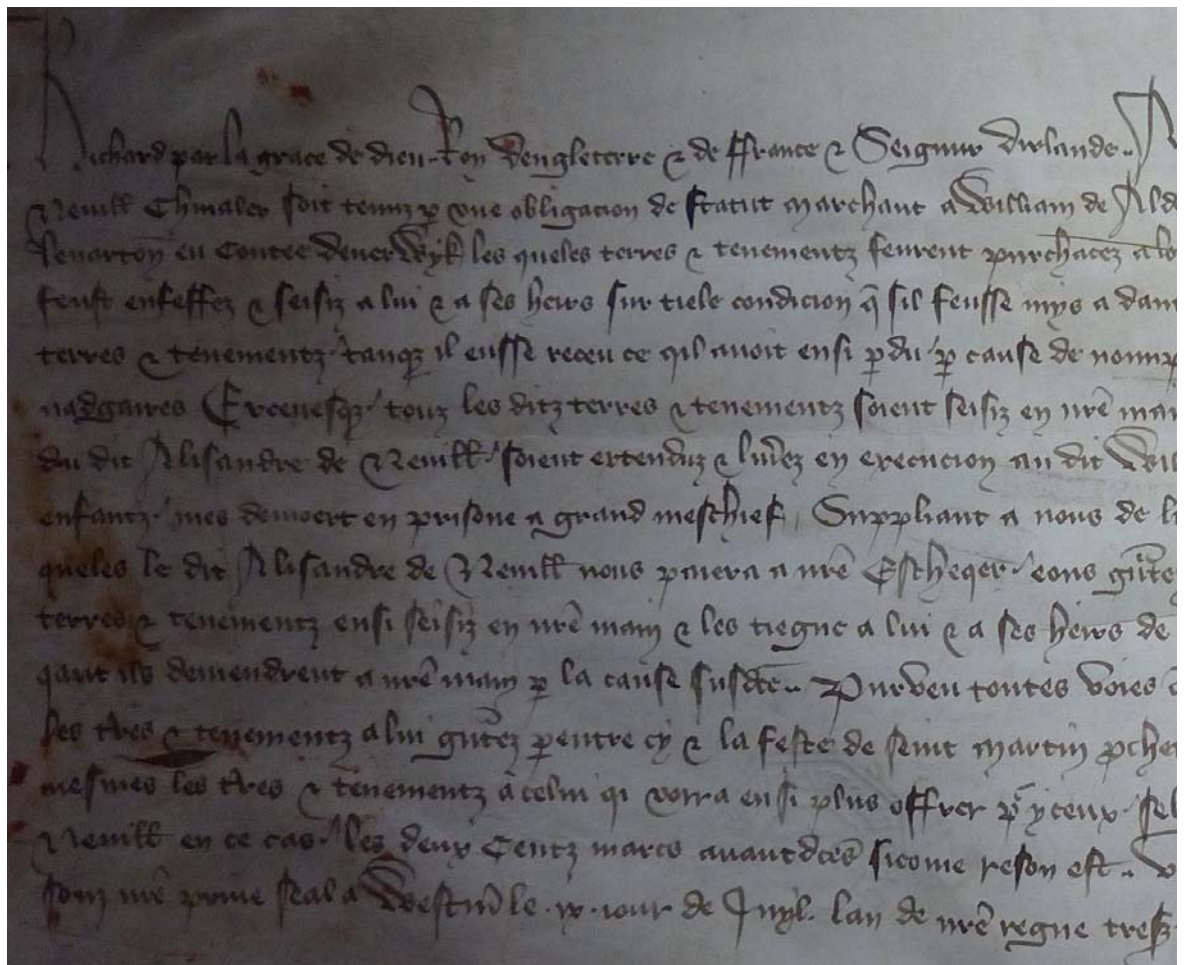 Richard par la grace de dieu Roy Dengleterre & de ffrance & Seignur Dirlande
Nevill Chivaler soit tenuz p̱ une obligacion de statut marchant a William de Ald
en Contee Deverwyk les queles terres & tenementz feurent purchacez a
feust enfeffez & seisiz a lui & a ses heirs sur tiele condicion q̄ sil feusse mys a dam
terres & tenementz tanqꝫ il eusse receu ce qil avoit ensi p̱du p̱ cause de
nadgaires Ercevesqꝫ touz les ditz terres & tenementz soient seisiz en nr̄e
du dit Alisandre de Nevill soient extenduz & liv̄ez en execucion au dit Wil
enfantz mes demoert en prisone a grand meschief Suppliant a nous de
queles le dit Alisandre de Nevill nous paiera a nr̄e Escheqer eons
terres & tenementz ensi seisiz en nr̄e main & les tiegne a lui & a ses heirs de
qant ils deviendrent a nr̄e main p̱ la cause susdc̄e Purveu toutes voies
les tr̄es & tenementz a lui p̱entre cy & la feste de seint martin
mesmes les tr̄es & tenementz a celui qi vorra ensi plus offrer yceux
Nevill en ce cas les deux Centz marcs avantdc̄es sicome reson est
souz nr̄e prive seal a Westm̄ le jour de Juyl lan de nr̄e regne